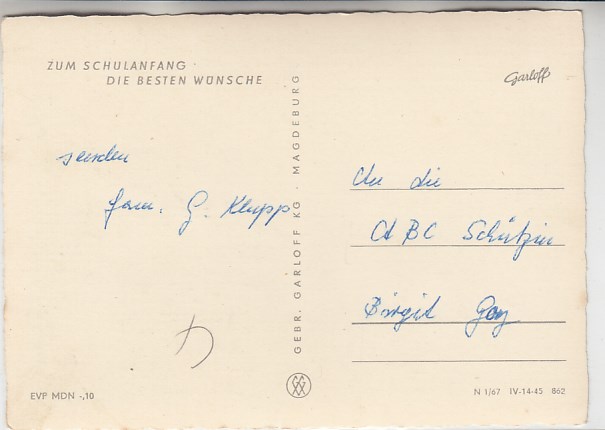 ZUM SCHULANFANG
DIE BESTEN WÜNSCHE
senden
Fam. G. Klupp
EVP MDN -,10
GEBR. GARLOFF KG · MAGDEBURG
Garloff
An die
ABC Schützin
Birgit Goy
N 1/67 IV-14-45 862